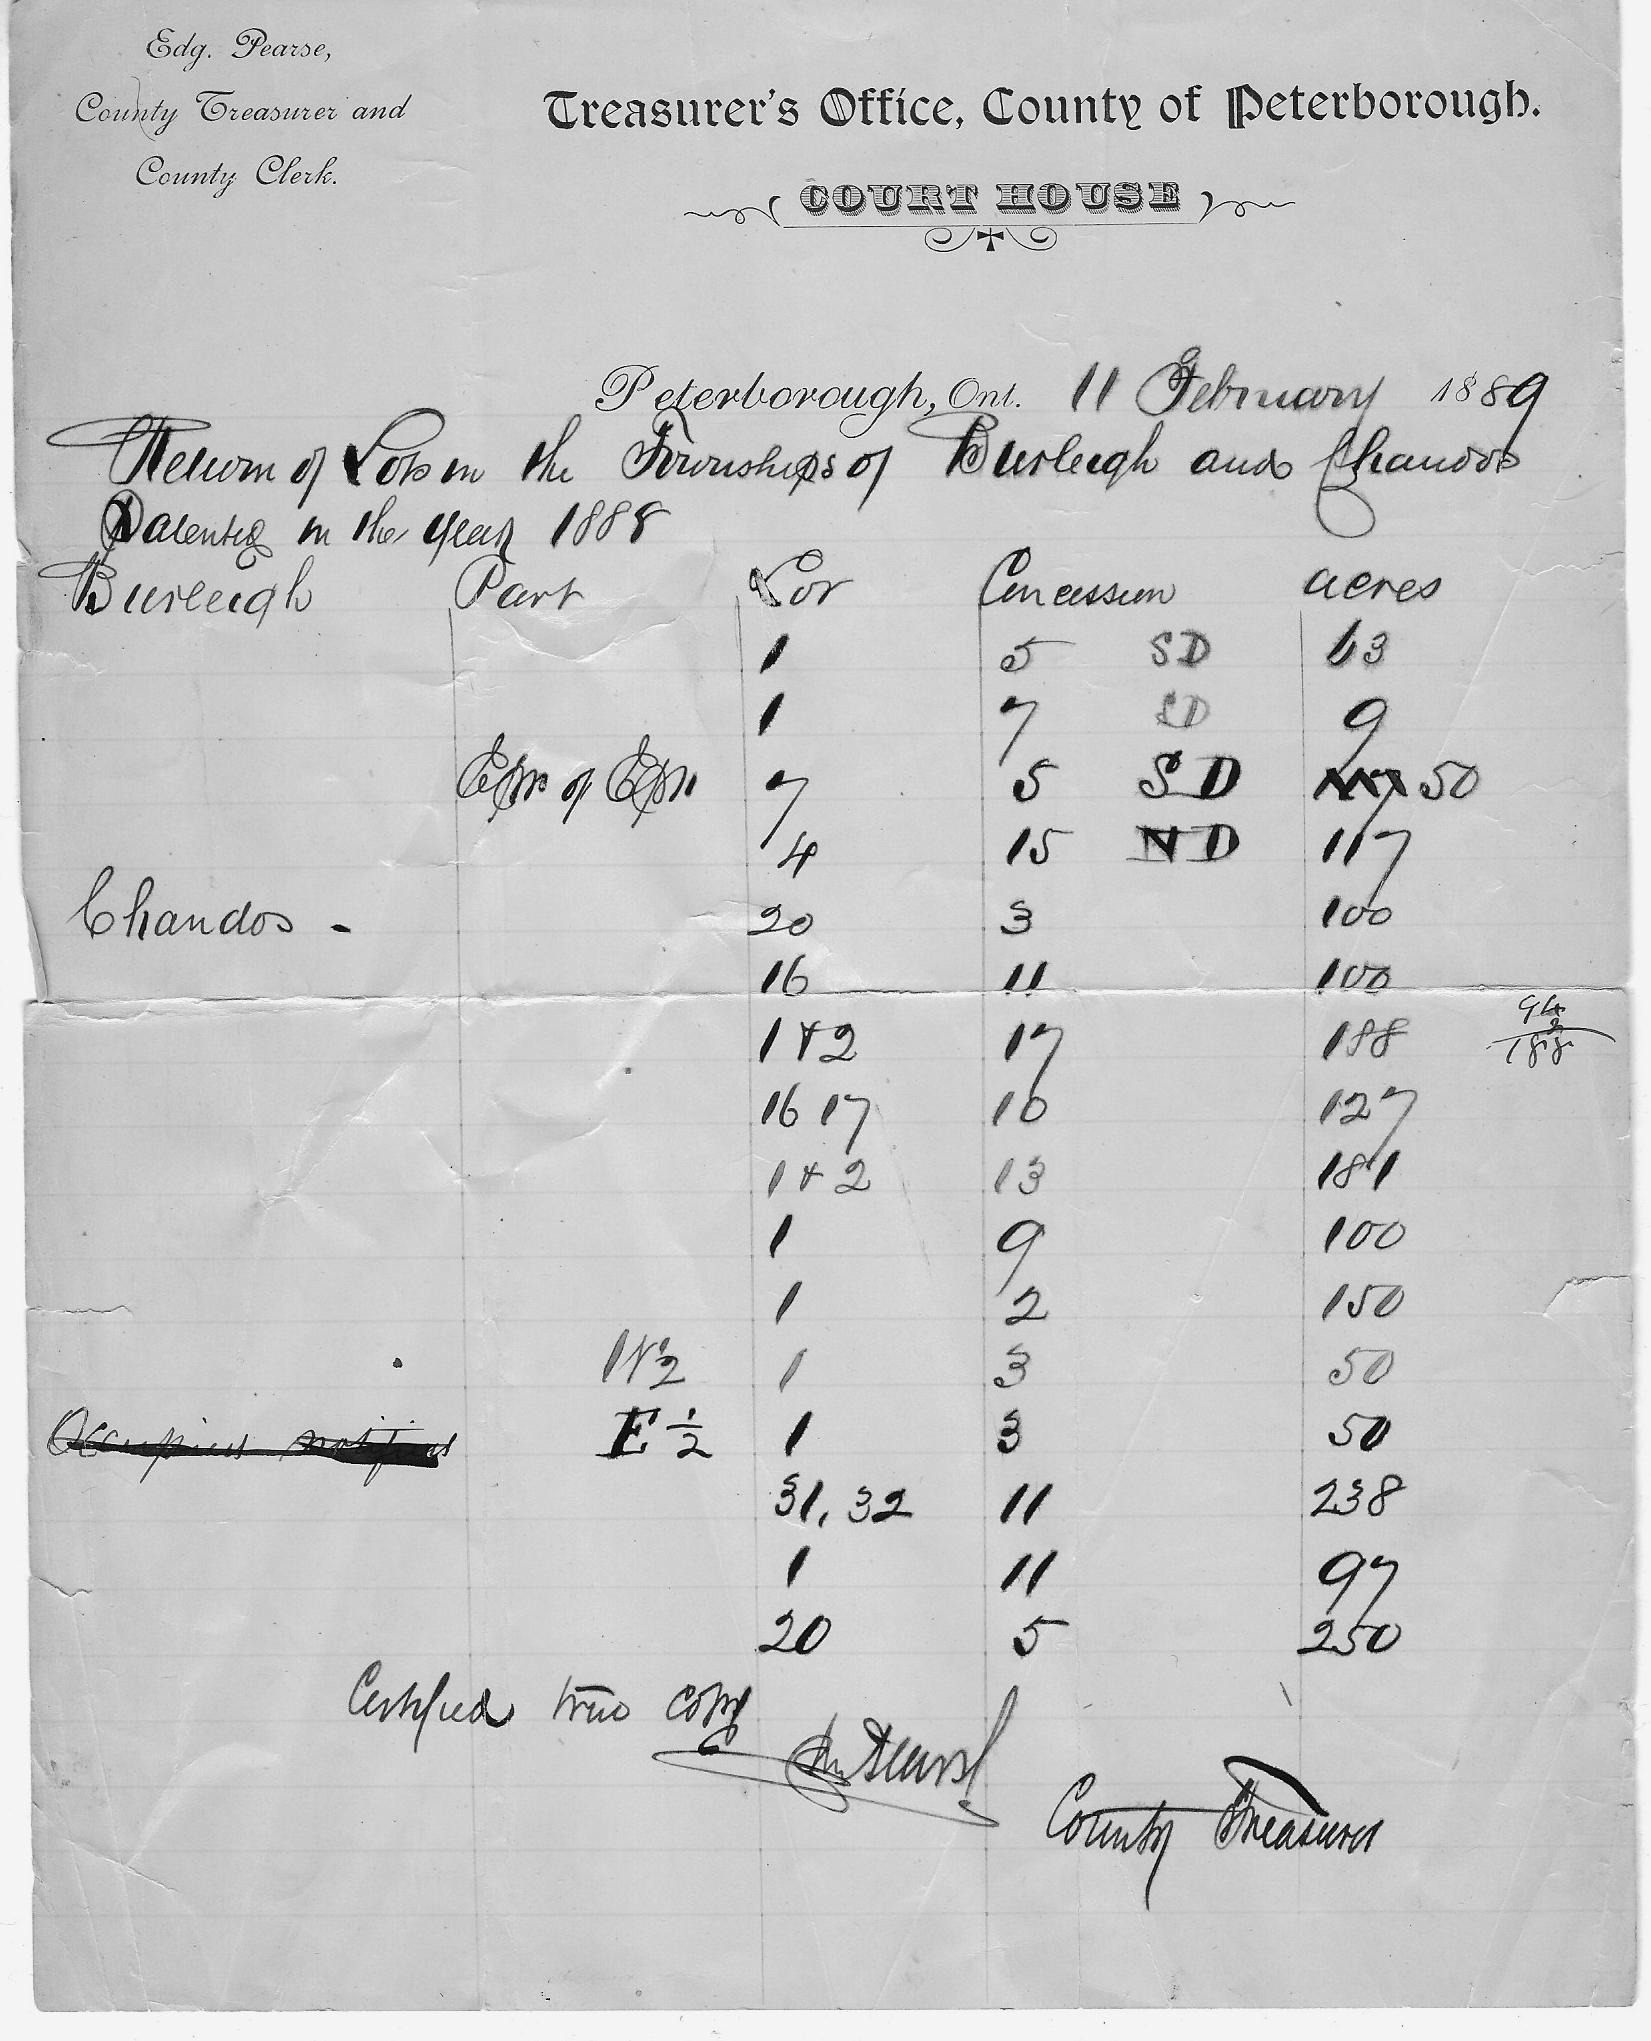 Edg. Pearse,
County Treasurer and
County Clerk.
Treasurer's Office, County of Peterborough.
COURT HOUSE
Peterborough, Ont. 11 February 1889
Return of Lots in the Townships of Burleigh and Chandos
Patented in the year 1888
Burleigh Part Lot Concession acres
1 5 SD 63
1 7 SD 9
of 7 5 SD 50
4 15 ND 117
Chandos - 20 3 100
16 11 100
94
2
1 & 2 17 188 188
16 17 10 127
1 & 2 13 181
1 9 100
1 2 150
W 1/2 1 3 50
Occupiers notified E 1/2 1 3 50
31, 32 11 238
1 11 97
20 5 250
Certified true copy
Pearse
County Treasurer